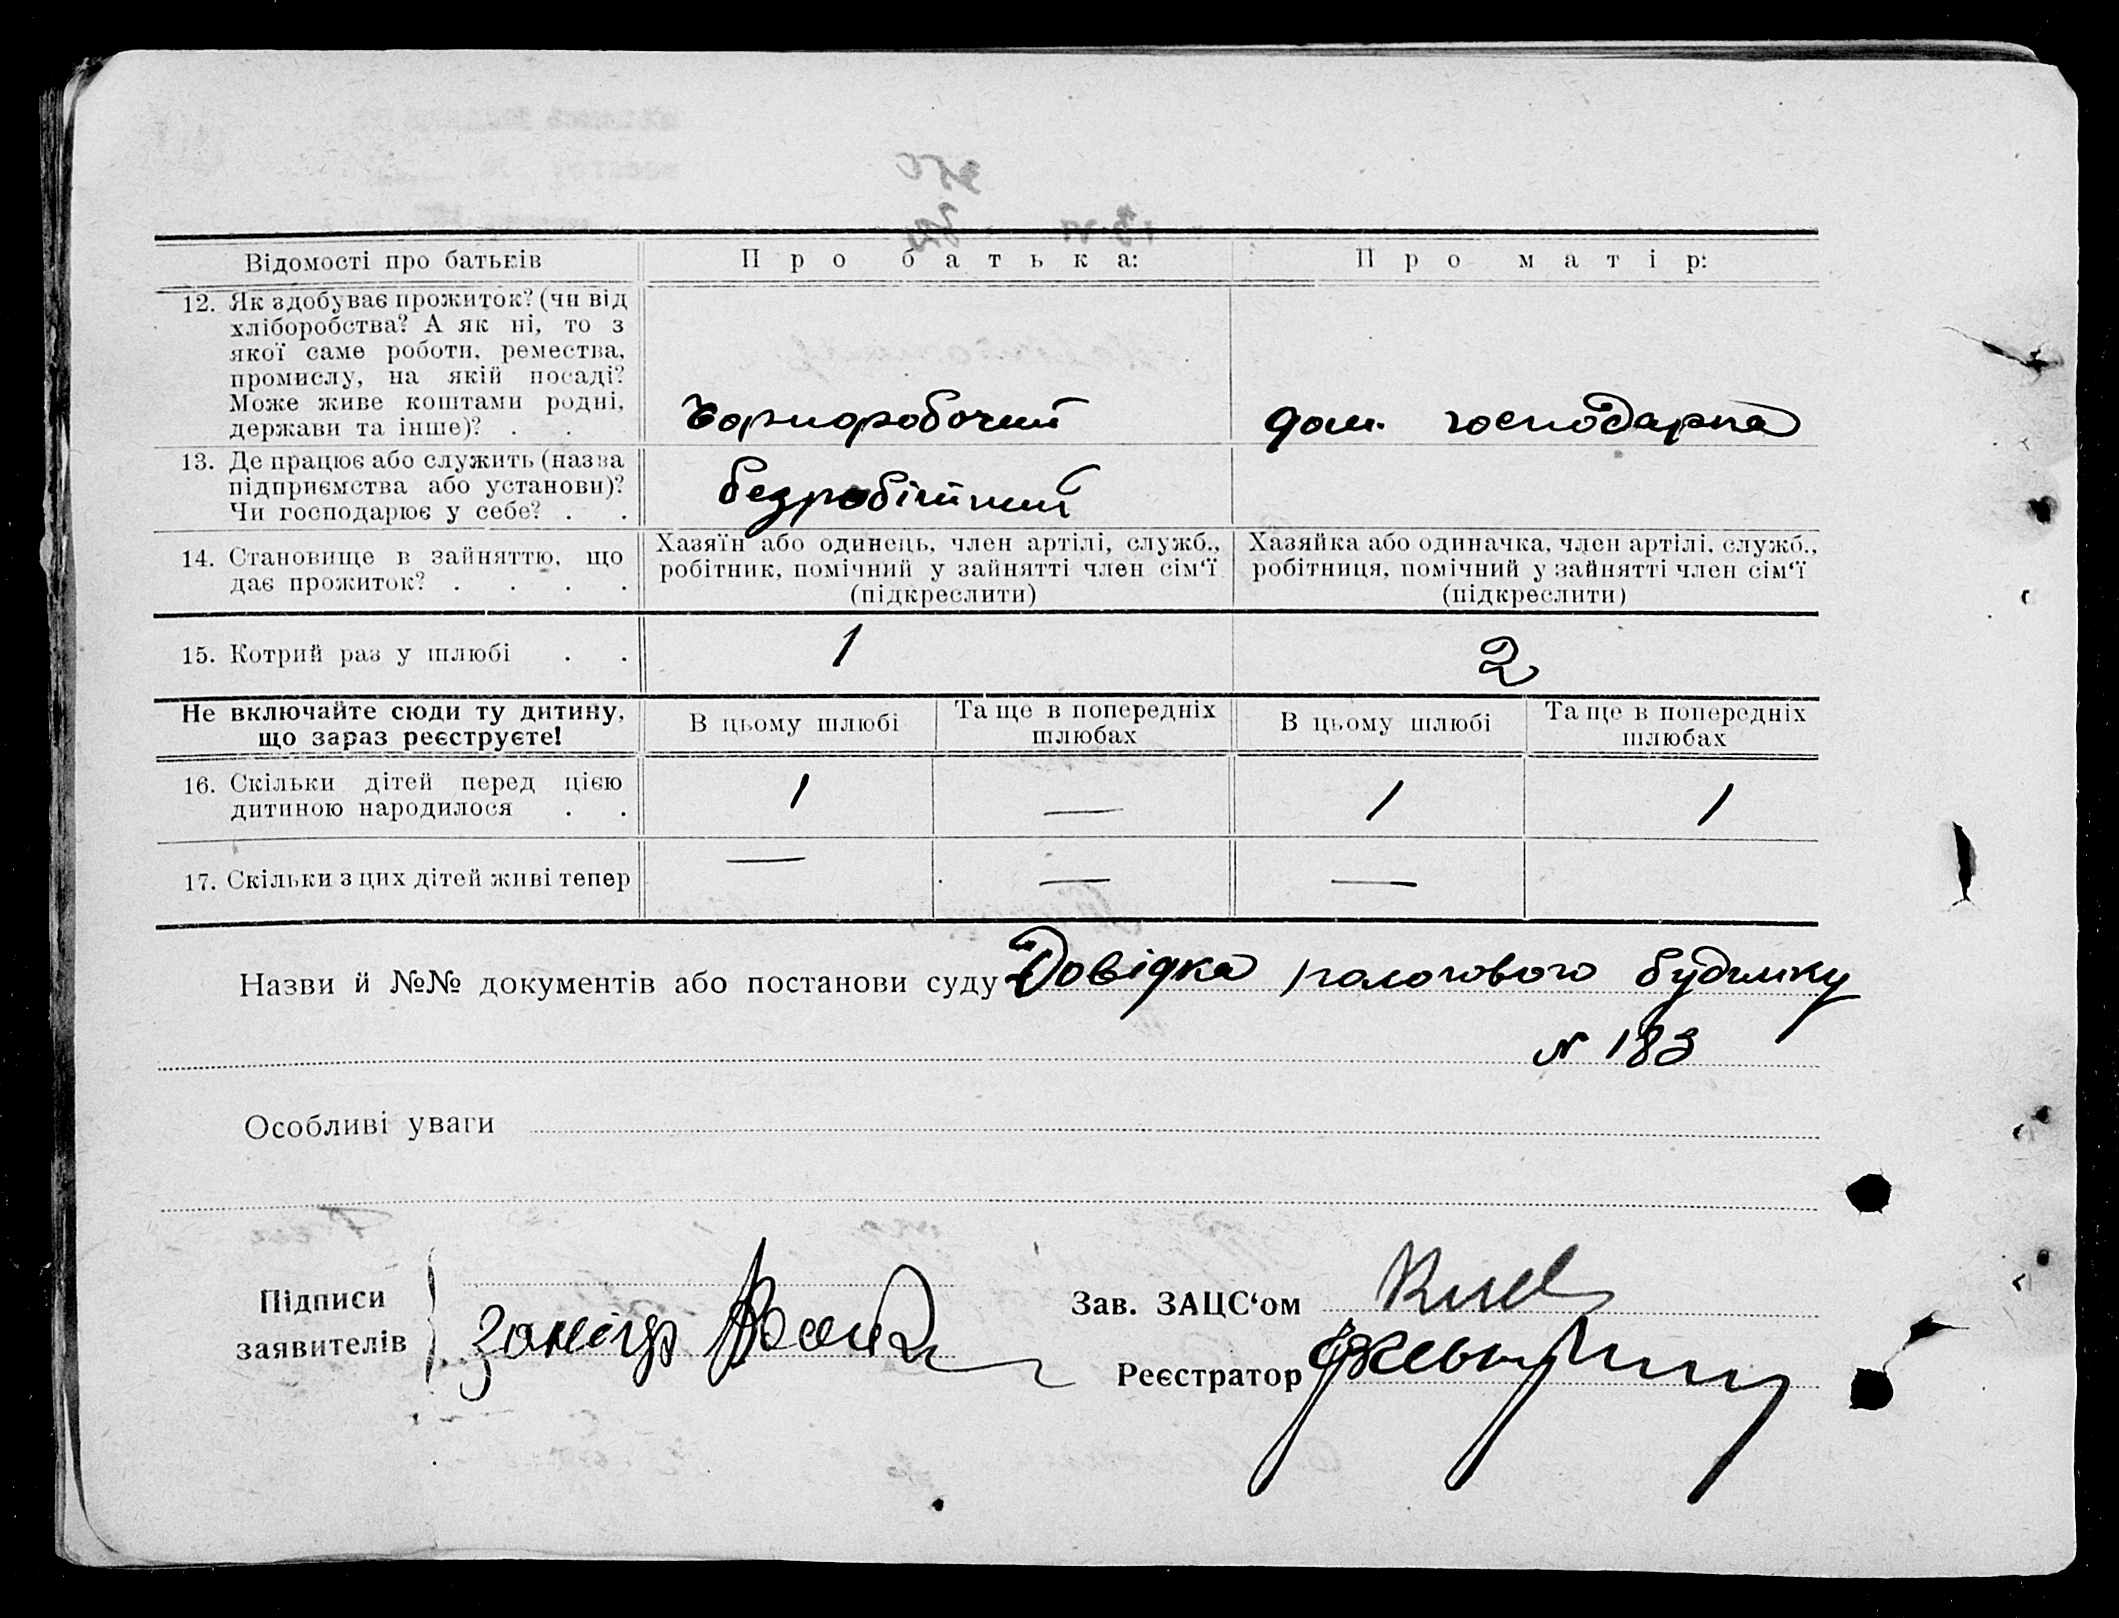 Відомості про батьків Про батька: Про матір:
12. Як здобуває прожиток? (чи від
хліборобства? А як ні, то з
якої саме роботи, ремества,
промислу, на якій посаді?
Може живе коштами родні,
держави та інше)? . .
Чорноробочий дом. господарка
13. Де працює або служить (назва
підприємства або установи)?
Чи господарює у себе? . .
безробітний
14. Становище в зайняттю, що
дає прожиток? . . . .
Хазяїн або одинець, член артілі, служб.,
робітник, помічний у зайнятті член сім‘ї
(підкреслити)
Хазяйка або одиначка, член артілі, служб.,
робітниця, помічний у зайнятті член сім‘ї
(підкреслити)
15. Котрий раз у шлюбі . . 1 2
Не включайте сюди ту дитину,
що зараз реєструєте!
В цьому шлюбі
Та ще в попередніх
шлюбах
В цьому шлюбі
Та ще в попередніх
шлюбах
16. Скільки дітей перед цією
дитиною народилося . .
1 — 1 1
17. Скільки з цих дітей живі тепер — — —
Назви й №№ документів або постанови суду Довідка пологового будинку
№ 183
Особливі уваги
Підписи
заявителів
Зав. ЗАЦС‘ом
Реєстратор